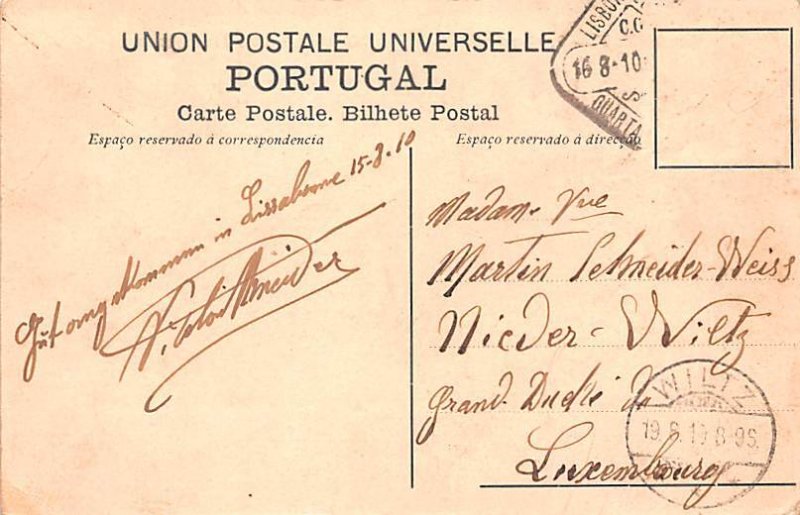 UNION POSTALE UNIVERSELLE
PORTUGAL
Carte Postale. Bilhete Postal
Espaço reservado á correspondencia
Espaço reservado á direcção
LISBOA
C.C
16 8-10
S
QUARTA
Gut angekommen in Lissabonne 15-8.10
Victor Schneider
Madame Vve
Martin Schneider-Weiss
Nieder-Wiltz
Grand Duché de
Luxembourg
WILTZ
19.8.10 8-9S.